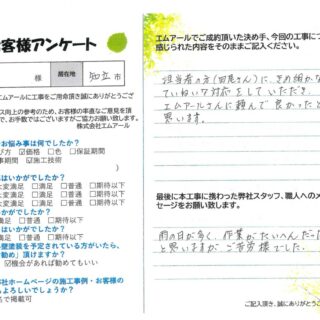 客様アンケート
様 居住地 知立 市
エムアールに工事をご用命頂き誠にありがとうござ
ス向上の参考のため、お客様の率直なご意見を頂
で、お手数ではございますがご協力お願い致します。
株式会社エムアール
お悩み事は何でしたか?
び方 ☑価格 □色 □保証期間
事期間 ☑施工技術
いかがでしたか?
大変満足 □満足 □普通 □期待以下
はいかがでしたか?
大変満足 □満足 □普通 □期待以下
はいかがでしたか?
満足 □普通 □期待以下
いかがでしたか?
満足 □普通 □期待以下
壁塗装を予定されている方がいたら、
勧め」頂けますか?
☑機会があれば勧めてもいい
社ホームページの施工事例・お客様の
もよろしいでしょうか?
名で掲載可
エムアールでご成約頂いた決め手、今回の工事につ
感じられた内容をそのままご記入ください。
担当者の方(田尾さん)に、きめ細かな
ていねいな対応をしていただき、
エムアールさんに頼んで良かったと
思います。
最後に本工事に携わった弊社スタッフ、職人へのメ
セージをお願い致します。
雨の日が多く、作業がたいへんだった
と思いますが ご苦労様でした。
ご記入頂き、誠にありがとうござ